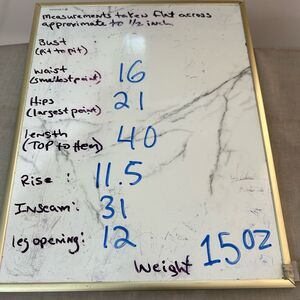 measurements taken flat across
approximate to 1/2 inch
Bust :
(Pit to Pit)
Waist : 16
(smallest point)
Hips : 21
(largest point)
Length : 40
(TOP to Hem)
Rise : 11.5
Inseam : 31
leg opening : 12
Weight 15oz